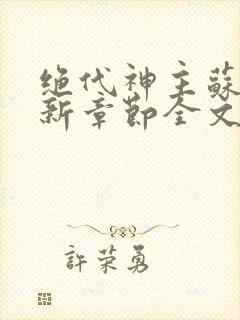 绝代神主蘇
新章節全文
許荣勇